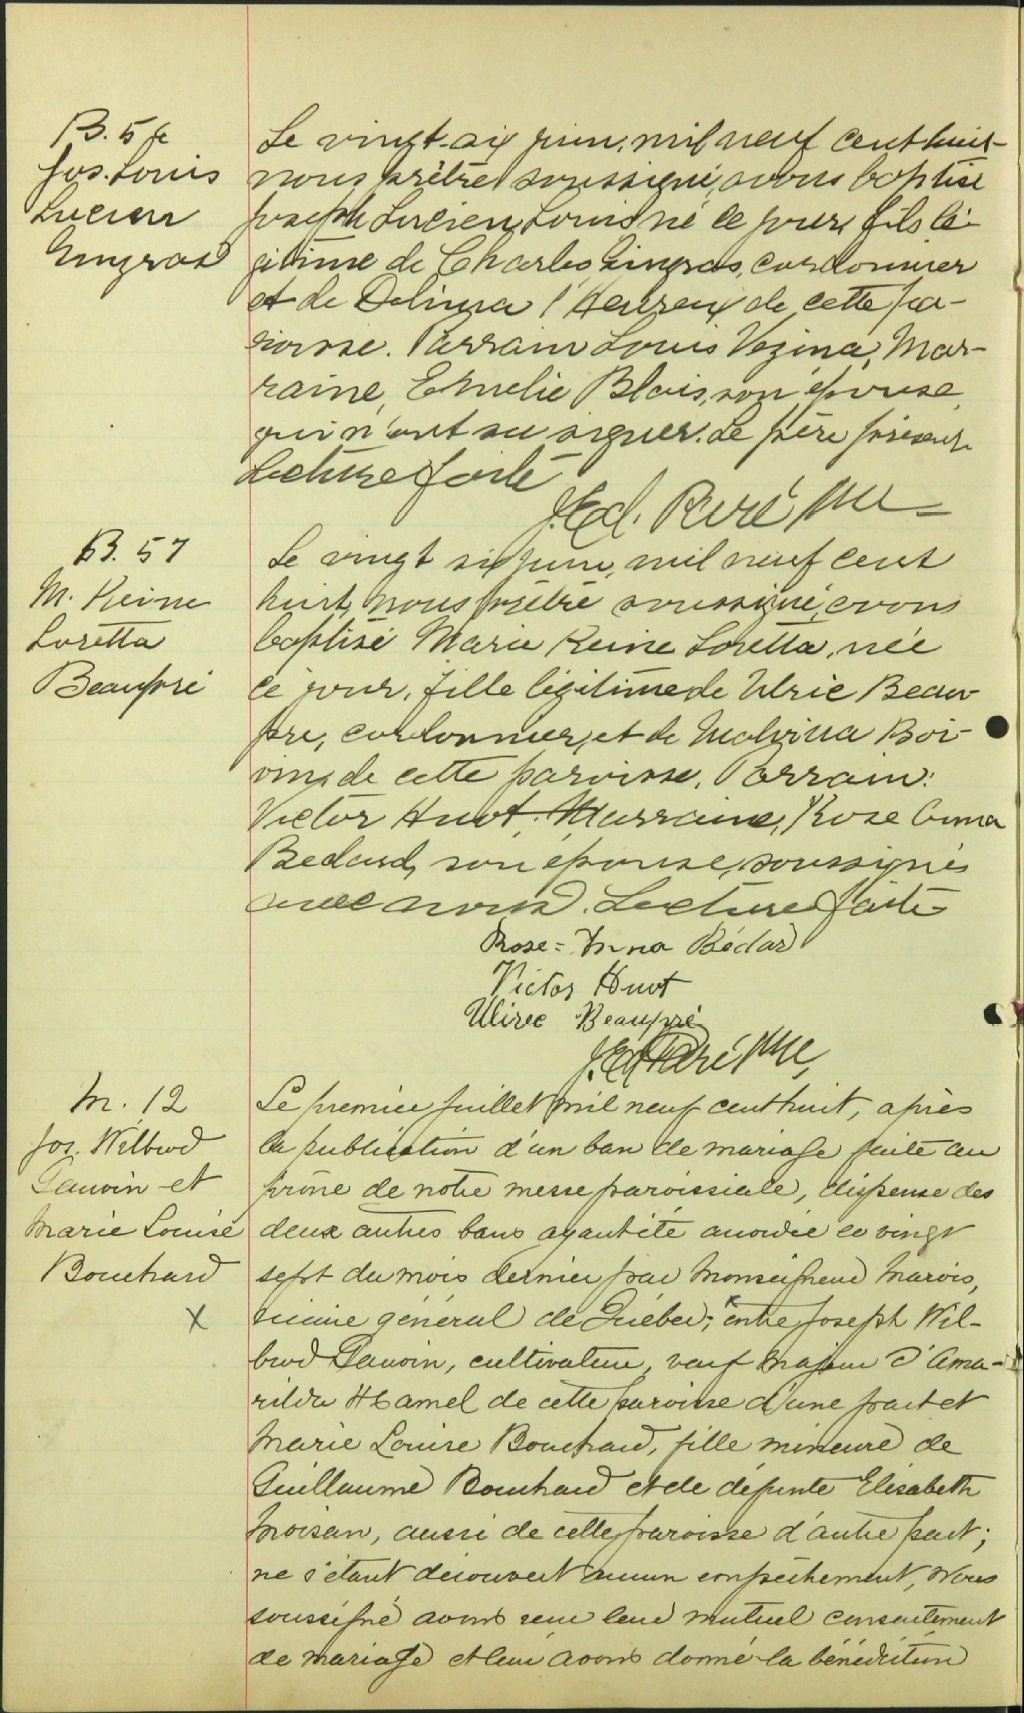 B. 56
Jos. Louis
Lucien
Gingras
Le vingt-six juin, mil neuf cent huit
nous prêtre soussigné, avons baptisé
Joseph Lucien Louis né ce jour, fils lé-
gitime de Charles Gingras, cordonnier
et de Delima l'Heureux de cette pa-
roisse. Parrain Louis Vezina, Mar-
raine, Emelie Blais, son épouse,
qui n'ont su signer. Le père présent
Lecture faite
J. Ed. Paré Ptre
B. 57
M. Reine
Loretta
Beaupré
Le vingt six juin, mil neuf cent
huit, nous prêtre soussigné, avons
baptisé Marie Reine Loretta, née
ce jour, fille légitime de Ulric Beau-
pre, cordonnier, et de Malvina Boi-
vin, de cette paroisse. Parrain:
Victor Huot, Marraine, Rose Anna
Bedard, son épouse, soussignés
avec nous. Lecture faite
Rose-Anna Bédard
Victor Huot
Ulirec Beaupré
J. Ed Paré Ptre,
M. 12
Jos. Wilbrod
Gauvin et
Marie Louise
Bouchard
X
Le premier juillet mil neuf cent huit, après
la publication d'un ban de mariage faite au
prône de notre messe paroissiale, dispense des
deux autres bans ayant été accordée le vingt
sept du mois dernier par Monseigneur Marois,
vicaire général de Québec; x entre Joseph Wil-
brod Gauvin, cultivateur, veuf majeur d'Ama-
rilda Hamel de cette paroisse d'une part et
Marie Louise Bouchard, fille mineure de
Guillaume Bouchard et de défunte Elisabeth
Moisan, aussi de cette paroisse d'autre part;
ne s'étant découvert aucun empêchement, Nous
soussigné avons reçu leur mutuel consentement
de mariage et leur avons donné la bénédiction